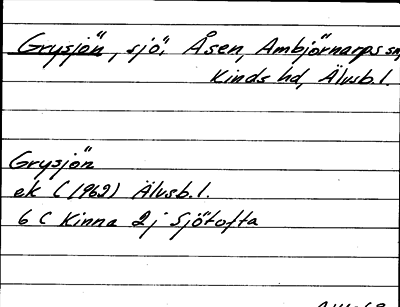 Grysjön, sjö i Åsen, Ambjörnarps sn,
Kinds hd, Älvsb. l.
Grysjön
ek (1962) Älvsb. l.
6 C Kinna 2 j Sjötofta